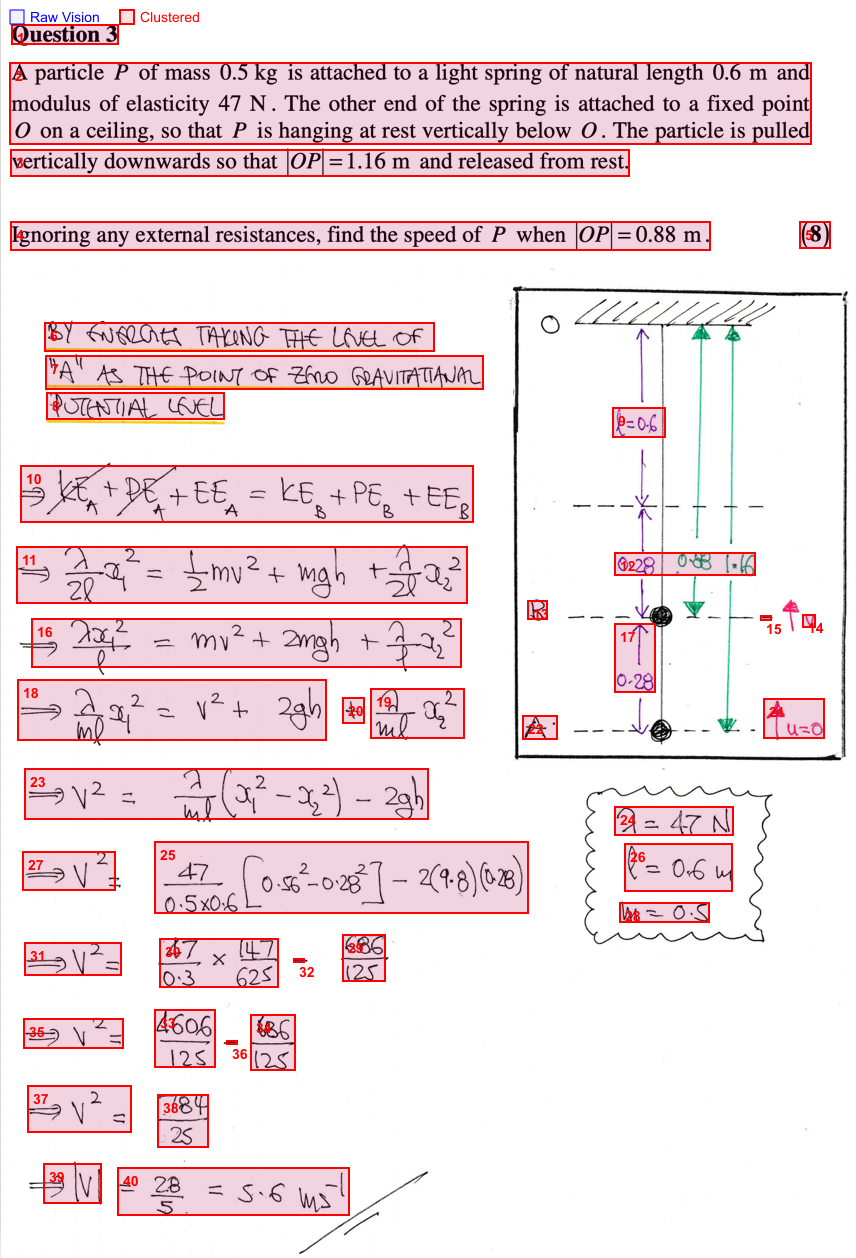 Raw Vision Clustered
Question 3
A particle P of mass 0.5 kg is attached to a light spring of natural length 0.6 m and
modulus of elasticity 47 N. The other end of the spring is attached to a fixed point
O on a ceiling, so that P is hanging at rest vertically below O. The particle is pulled
vertically downwards so that |OP| = 1.16 m and released from rest.
Ignoring any external resistances, find the speed of P when |OP| = 0.88 m. (8)
BY ENERGIES TAKING THE LEVEL OF
"A" AS THE POINT OF ZERO GRAVITATIONAL
POTENTIAL LEVEL
10 ⇒ KE_A + PE_A + EE_A = KE_B + PE_B + EE_B
11 ⇒ λ/2l x₁² = 1/2 mv² + mgh + λ/2l x₂²
16 ⇒ λx₁²/l = mv² + 2mgh + λ/l x₂²
18 ⇒ λ/ml x₁² = v² + 2gh + 19 λ/ml x₂²
23 ⇒ v² = λ/ml (x₁² - x₂²) - 2gh
27 ⇒ v² = 25 47/0.5×0.6 [0.56² - 0.28²] - 2(9.8)(0.28)
31 ⇒ v² = 47/0.3 × 147/625 - 32 686/125
35 ⇒ v² = 4606/125 - 36 686/125
37 ⇒ v² = 38 784/25
39 ⇒ |v| = 40 28/5 = 5.6 ms⁻¹
O
9 l=0.6
12 0.28 0.88 1.16
B 15 v 14
17
0.28
A u=0
24 λ = 47 N
26 l = 0.6 m
28 m = 0.5